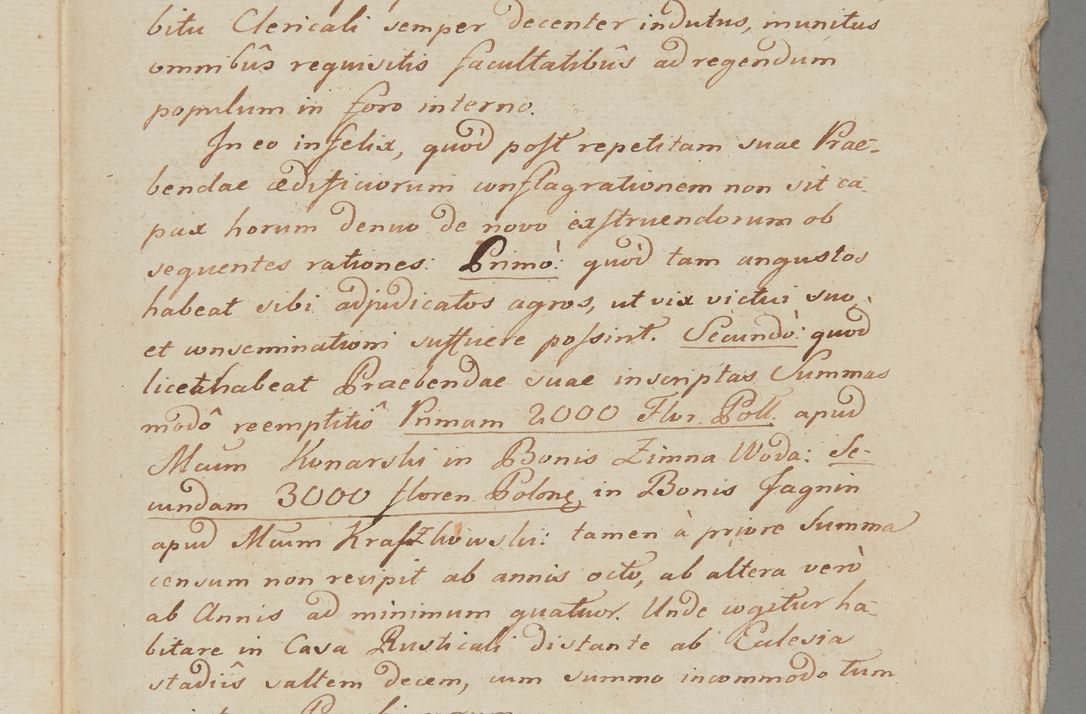 bitu Clericali semper decenter indutus, munitus
omnibûs requisitis facultatibûs ad regendum
populum in foro interno.
In eo infelix, quòd post repetitam suae Prae-
bendae ædificiorum conflagrationem non sit ca-
pax horum denuo de novo exstruendorum ob
sequentes rationes: Primò: quòd tam angustos
habeat sibi adjudicatos agros, ut vix victui suo,
et conseminationi sufficere possint. Secundò: quòd
licet habeat Praebendae suae inscriptas Summas
modô reemptitiô Primam 2000 Flor. Poll. apud
Mcum Konarski in Bonis Zimna Woda: Se-
cundam 3000 floren. Polonę in Bonis Jagnin
apud Mcum Kraszkowski: tamen à priore Summa
censum non recipit ab annis octo, ab altera verò
ab Annis ad minimum quatuor. Unde cogitur ha-
bitare in Casa Rusticali distante ab Ecclesia
stadiîs saltem decem, cum summo incommodo tum